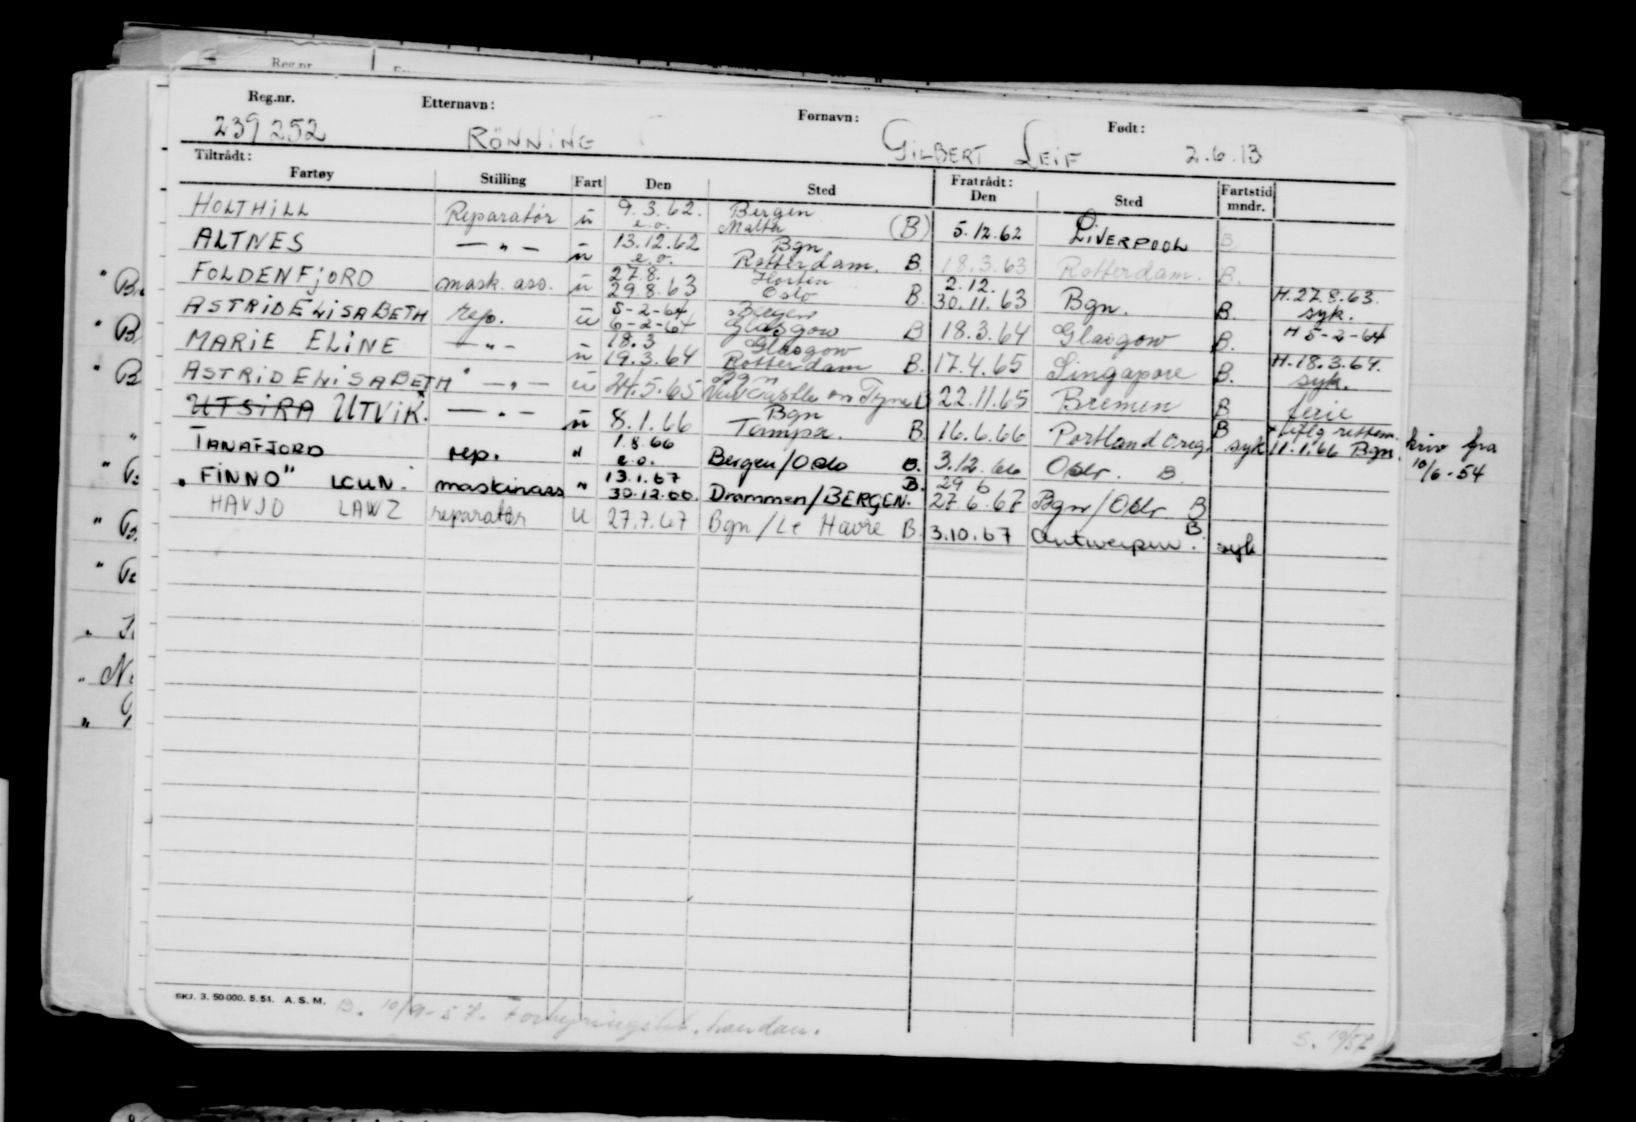 Reg.nr. Etternavn: Fornavn: Født:
239252 RÖNNING GILBERT LEIF 2.6.13
Tiltrådt: Fratrådt:
Fartøy Stilling Fart Den Sted Den Sted Fartstid mndr.
HOLTHILL Reparatör u 9.3.62. e.o. Bergen Malta (B) 5.12.62 LIVERPOOL B.
ALTNES — " — u 13.12.62 e.o. Bgn Rotterdam. B. 18.3.63 Rotterdam. B.
FOLDENFJORD mask. ass. u 27.8. 29.8.63 Horten Oslo B 2.12. 30.11.63 Bgn. B. H.27.8.63. syk.
ASTRID ELISABETH rep. u 5-2-64 6-2-64 Bergen Glasgow B 18.3.64 Glasgow B. H 5-2-64
MARIE ELINE — " — u 18.3 19.3.64 Glasgow Rotterdam B. 17.4.65 Singapore B. H.18.3.64. syk.
ASTRID ELISABETH — " — u 24.5.65 Bgn Newcastle on Tyne B 22.11.65 Bremen B ferie
UTSIRA UTVIK. — " — u 8.1.66 Bgn Tampa. B. 16.6.66 Portland Oreg. B syk 11.1.66 Bgn.
TANAFJORD rep. " 1.8.66 e.o. Bergen/Oslo B. 3.12.66 Oslo. B.
"FINNO" LCUN. maskinass " 13.1.67 30.12.66. Drammen/BERGEN. B. 29 6 27.6.67 Bgn/Oslo B
HAVJO LAWZ reparatør u 27.7.67 Bgn/Le Havre B. 3.10.67 Antwerpen. B. syk
fra
10/6-54
SKJ. 3. 50 000. 5. 51. A. S. M. B. 10/9-57.
S. 19/57